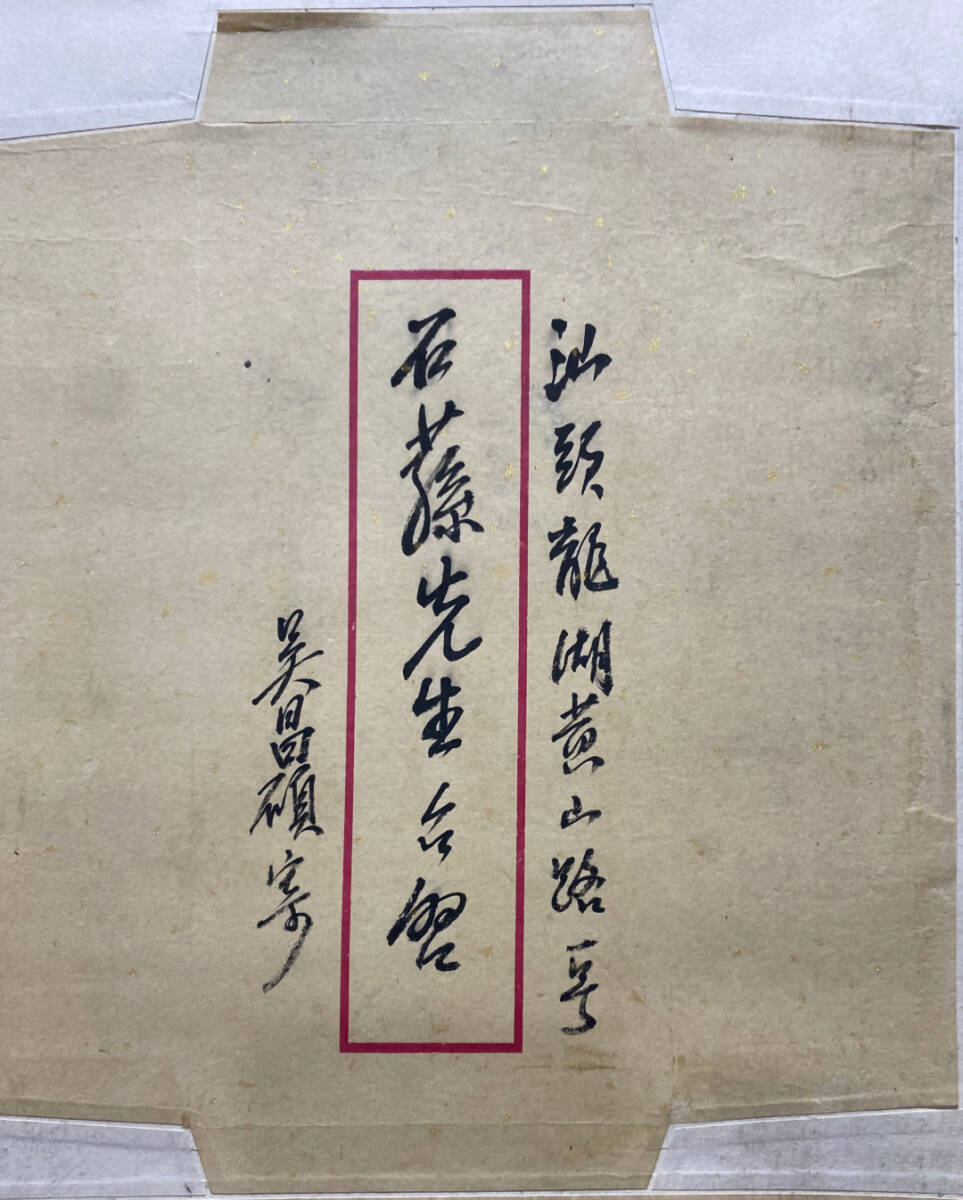 汕頭龍湖黄山路一号
石藤先生台啓
吴昌碩寄